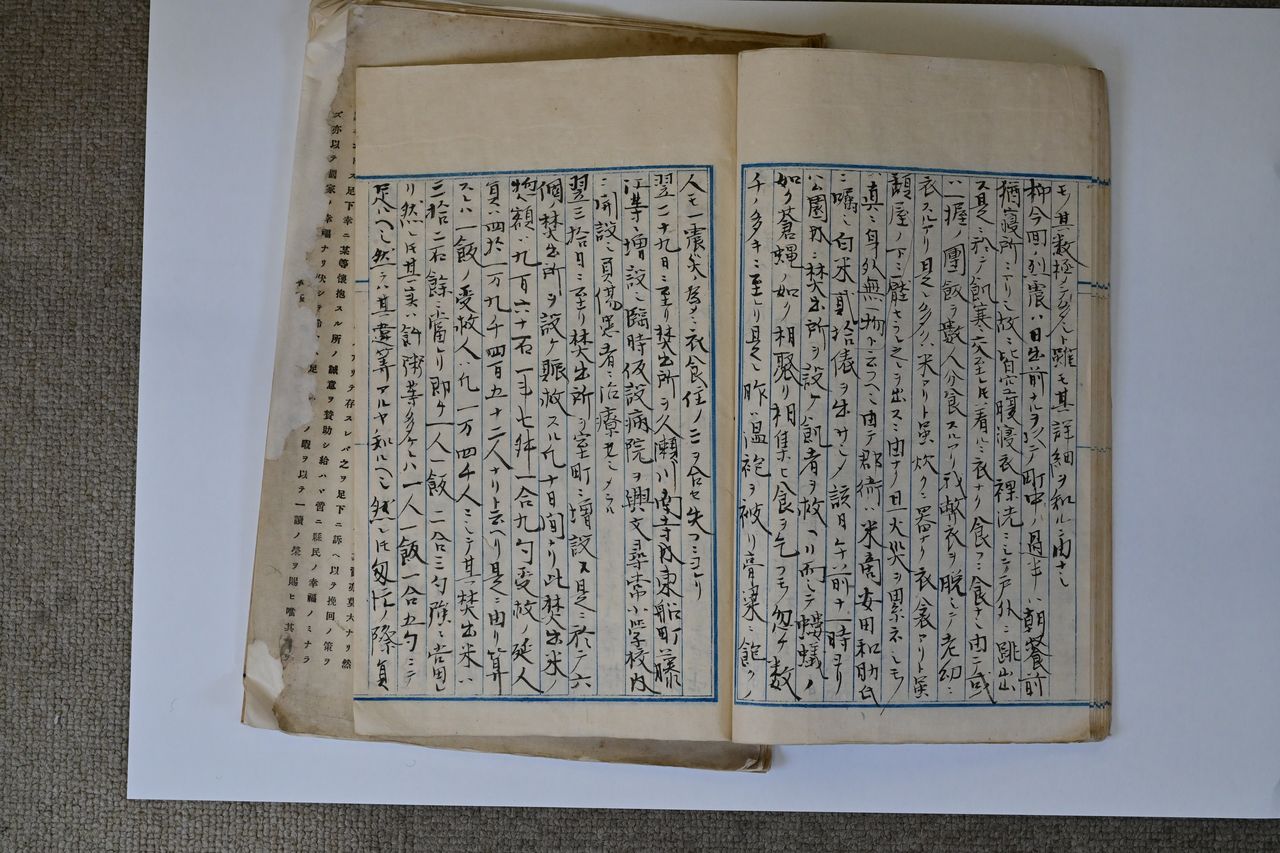 モ其数極メテ多シト雖モ其詳細ヲ知ルニ由ナシ
抑今回ノ烈震ハ日出前ナルヲ以テ町中ノ過半ハ朝餐前
猶寝所ニアリシ故ニ皆空腹寝衣裸洗ニシテ戸外ニ跳出
ス是ニ於テ飢寒交至レ𪜈着ルニ衣ナク食フニ食ナシ由テ或
ハ一握ノ團飯ヲ數人分食スルアリ或ハ敝衣ヲ脱シテ老幼ニ
衣スルアリ是シ多クハ米アリト虽炊クニ器ナク衣衾アリト虽
頽屋ノ下ニ壓セラレ之ヲ出スニ由ナク且火災ヲ累ネシモノ
ハ真ニ身外無一物ト云フヘシ由テ郡衙ハ米商安田和助氏
ニ嘱シ白米貳拾俵ヲ出サシメ該日午前十一時ヨリ
公園内ニ焚出所ヲ設ケ飢者ヲ救ヘリ而シテ蟻ノ
如ク蒼蝿ノ如ク相聚リ相集ヒ食ヲ乞フモノ忽ケ数
千ノ多キニ至レリ是レ昨温袍ヲ被リ膏粱ニ飽クノ
人モ一震災ノ為メニ衣食住ノ三ヲ合セ失フニヨレリ
翌二十九日ニ至リ焚出所ヲ久瀬川南寺内東船町藤
江等ニ増設シ臨時仮設病院ヲ興文尋常小学校内
ニ開設シ負傷患者ニ治療セシメラル
翌三拾日ニ至リ焚出所ヲ室町ニ増設ス是ニ於テ六
個焚出所ヲ設ケ賑救スル凡十日間ナリ此焚出米ノ
惣額ハ九百六十石一斗七舛一合九勺受救ノ延人
員ハ四拾一万九千四百五十二人ナリト云ヘリ是ニ由リ算
スレハ一飯ノ受救人ハ凡一万四千人ニシテ其一焚出米ハ
三拾二石餘ニ當レリ即ケ一人一飯二合三勺強ニ當レ
リ然レ𪜈其実ハ許粥等多ケレハ一人一飯一合五勺ニテ
足ルヘシ然ラハ其違算アルヤ知ルヘシ然レ𪜈匆忙ノ際負
アリテ存スレバ之ヲ足下ニ訴ヘ以テ挽回ノ策ヲ
足下幸ニ某等懐抱スル所ノ誠意ヲ賛助シ給ハヾ啻ニ罹民ノ幸福ノミナラ
ズ亦以テ國家ノ幸福ナリ
ノ暇ヲ以テ一讀ノ榮ヲ賜ヒ